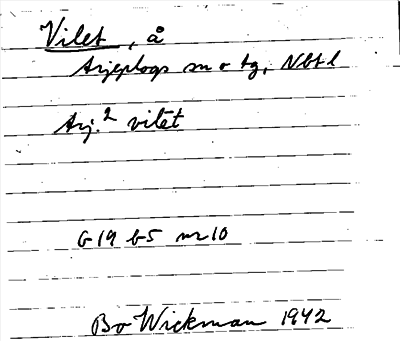 Vilet, å
Arjeplogs sn o tg, Nbtl
Arj.² vilēt
G19 b5 nr10
Bo Wickman 1942